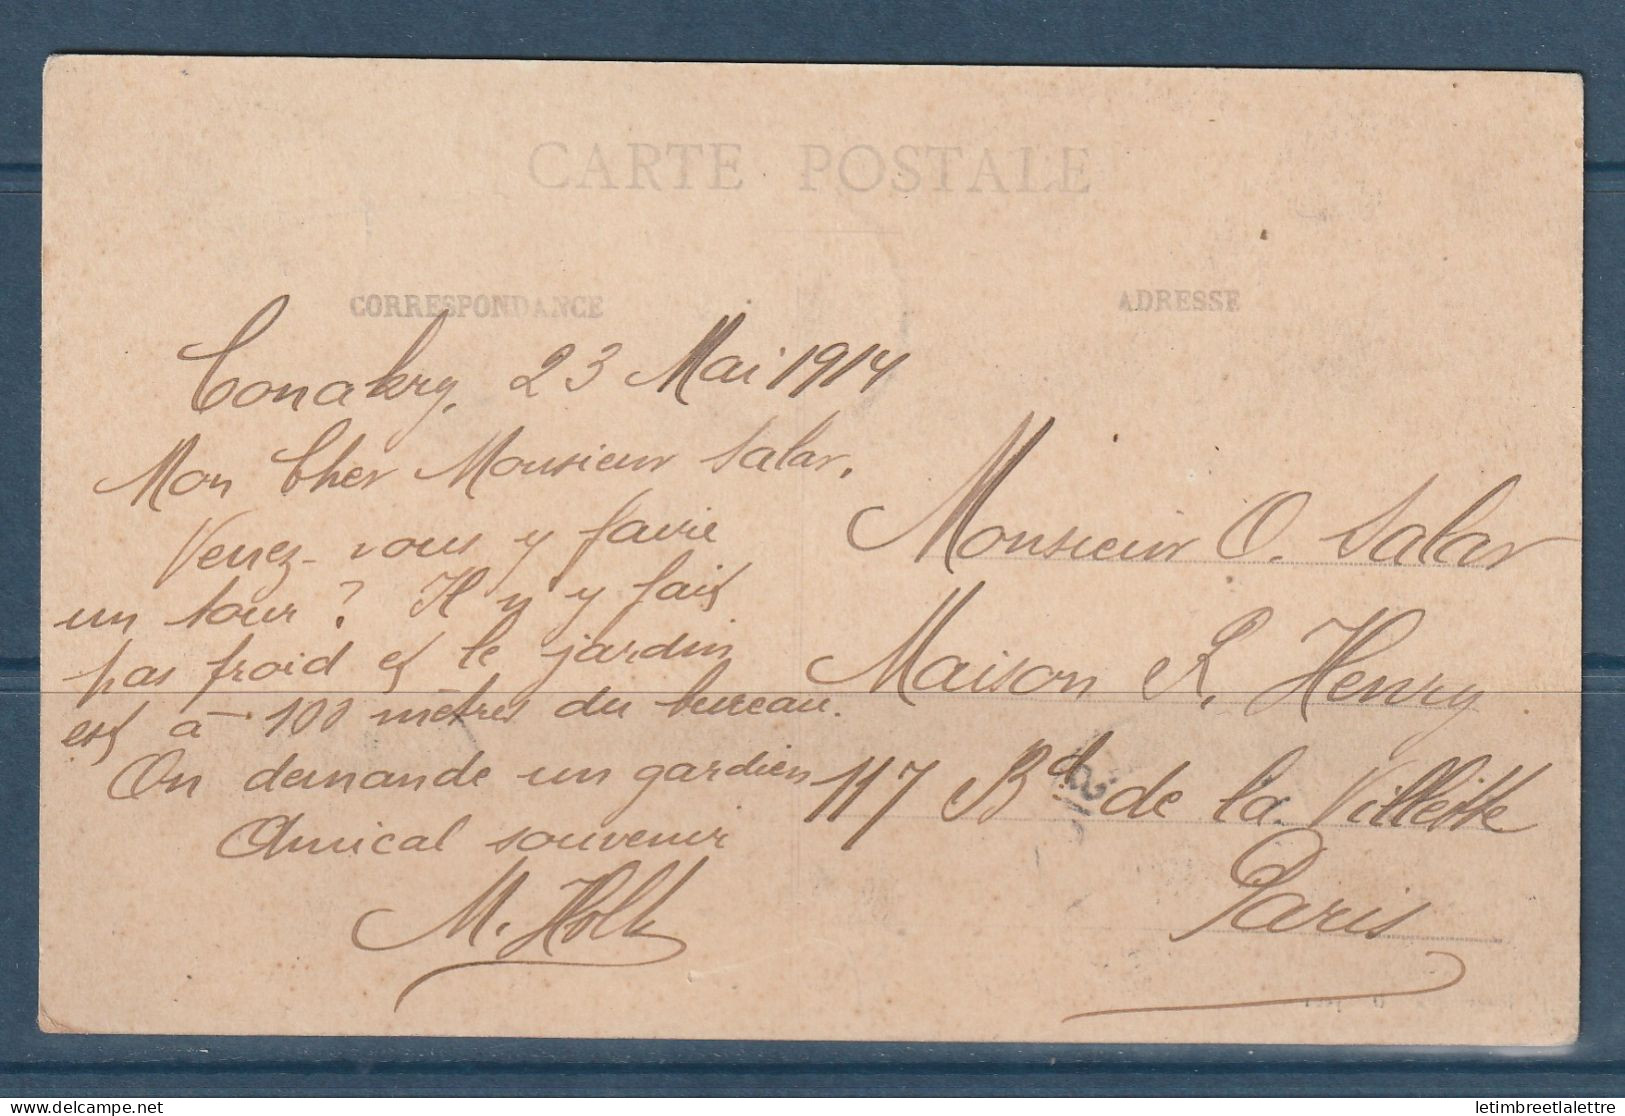 CARTE POSTALE
CORRESPONDANCE
ADRESSE
Conakry, 23 Mai 1914
Mon Cher Monsieur Salar,
Venez-vous y faire
un tour? Il y y fait
pas froid et le jardin
est à 100 mètres du bureau.
On demande un gardien
Amical souvenir
M. Holk
Monsieur O. Salar
Maison R. Henry
117 Bd de la Villette
Paris
letimbreetlalettre
delcampe.net